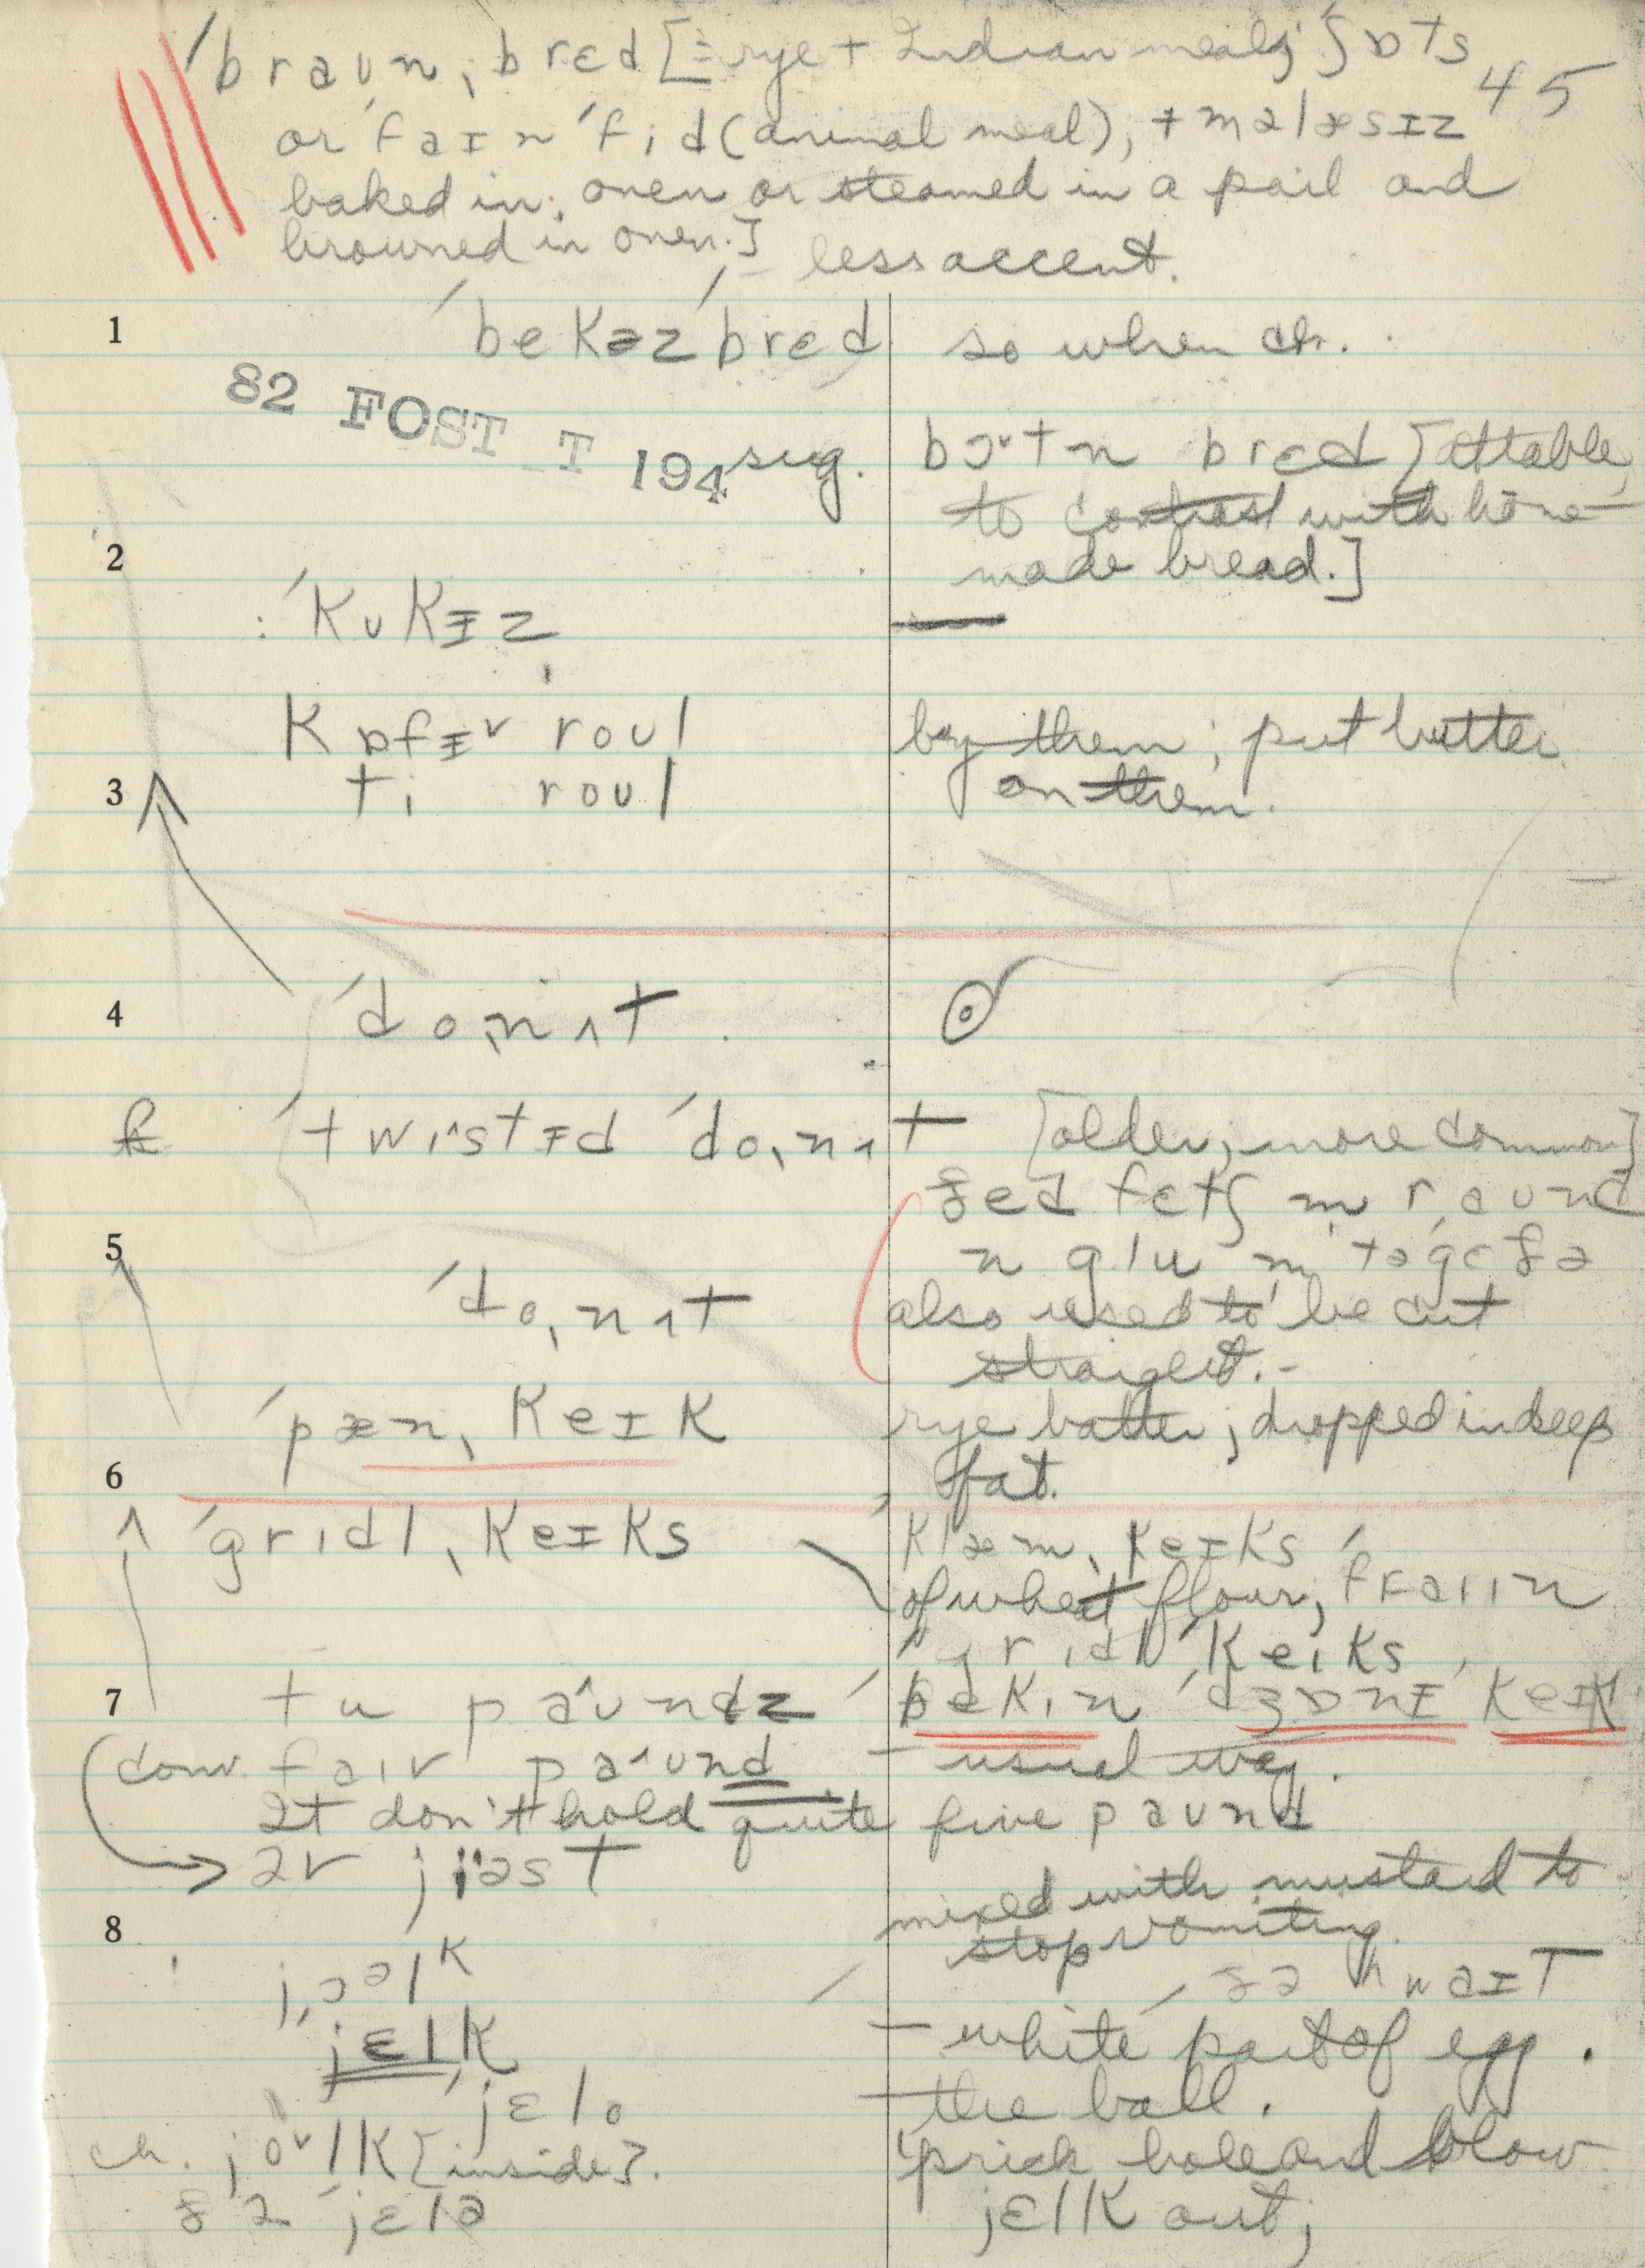 ˈbraun ˌbrɛd [= rye + Indian meal; ʃɒts 45
or ˈfaɪn ˈfid (animal meal), + məlæsɪz
baked in oven or steamed in a pail and
browned in oven.] – less accent.
1 ˈbekəz ˈbrɛd so when ch.
82 FOST T 194
sug. bɔˇtn brɛd [at table,
to contrast with home-
2 made bread.]
ˈkʊkɪz —
kɒfɪˇ roul buy them; put butter
3 ti roul on them.
4 ˈdoˌnʌt
ˈtwɪstɪd ˈdoˌnʌt [older, more common]
ðed fɛtʃ m raund
5 n glu m təgɛðə
ˈdoˌnʌt also used to be cut
straight. –
ˈpænˌkeɪk rye batter; dropped in deep
6 fat.
ˈgrɪdlˌkeɪks klæmˌkeɪks
of wheat flour,
ˈgrɪdl ˈkeɪks
7 tu paundz ˈdʒɒnɪ keɪk
conv. paund – usual way.
It don't hold quite five paund
ər jiəst mixed with mustard to
8 stop vomiting.
jɔəlk ðə hwaɪt
jɛlk – white part of egg.
jɛlo – the ball.
ch. joˇlk [inside]. prick hole and blow
ðə ˈjɛlə jɛlk out;